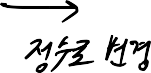 정수로 변경